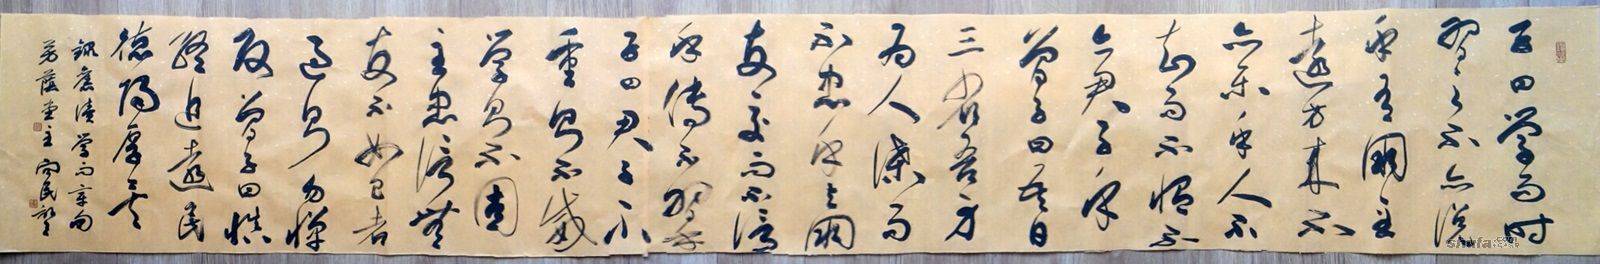 子曰学而时
習之不亦说
乎有朋自
遠方来不
亦乐乎人不
知而不愠不
亦君子乎
曾子曰吾日
三省吾身
为人谋而
不忠乎与朋
友交而不信
乎传不習乎
子曰君子不
重则不威
学则不固
主忠信無
友不如己者
过则勿惮
改曾子曰慎
終追遠民
德归厚矣
錄舊读学而章句
蔭堂主民
shufa